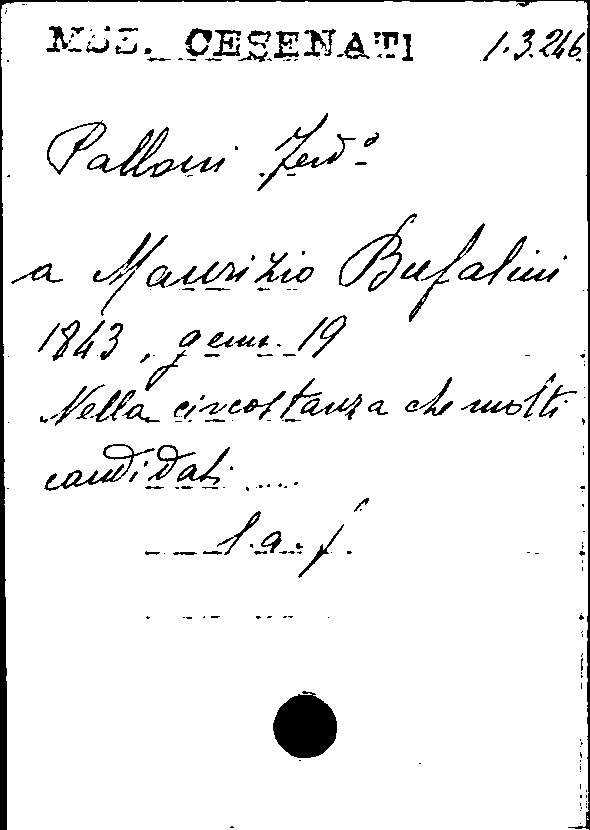 MSS. CESENATI 1.3.246
Palloni Ferd°
a Maurizio Bufalini
1843, genn. 19
Nella circostanza che molti
candidati ....
l.a.f.